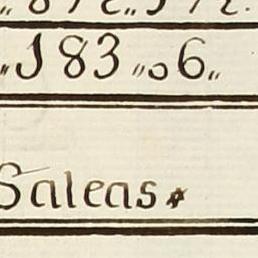 „183„06„
Saleas